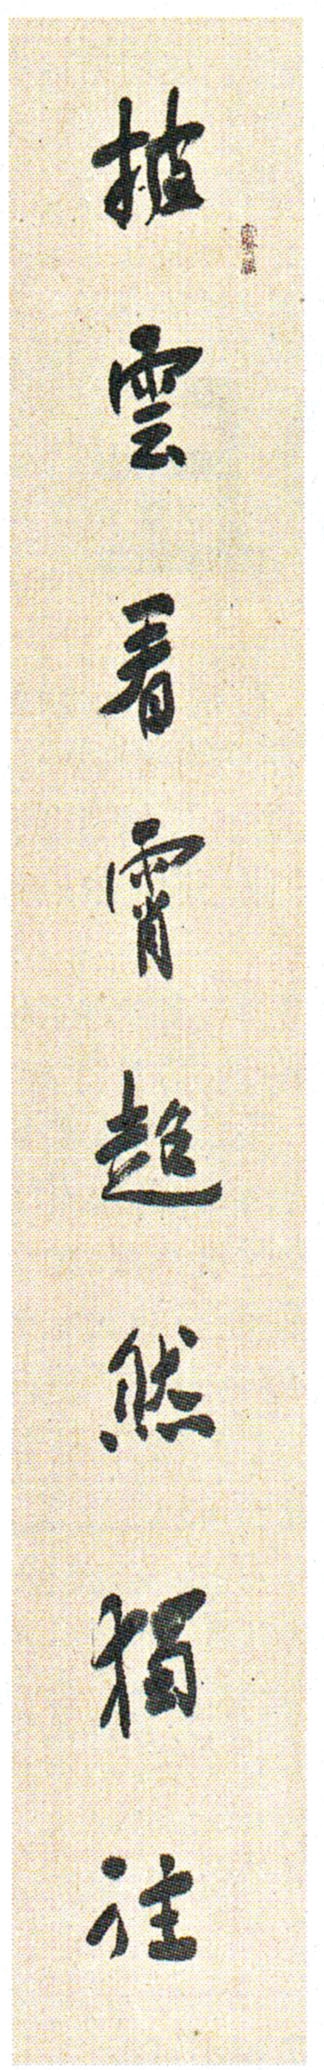 披雲看霄超然獨往